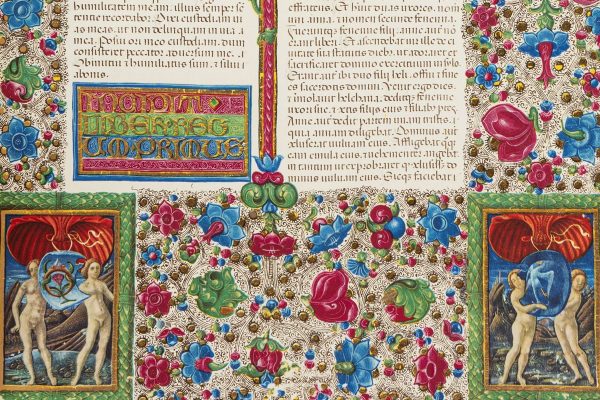 humilitatem meam: illius semper sc
tenz recordabor. Dixi custodiam ui
as meas, ut non delinquam in lingua
mea. Posui ori meo custodiam, dum
consisteret peccator aduersum me.
Obmutui humiliatus sum, & silui
a bonis.
INCIPIT
LIBER REG
UM PRIMUS
effratheus. Et habuit duas uxores, nom
uni anna, & nomen secunde fenenna.
Fueruntque fenenne filii, anne non
erant liberi. Et ascendebat uir ille de ci
uitate sua statutis diebus, ut adoraret et
sacrificaret domino exercituum in sylo.
Erant autem ibi duo filii heli, ofni & fine
es sacerdotes domini. Venit ergo dies
& immolauit helchana, deditque fenenne
uxori sue, & cunctis filiis eius
Anne autem dedit partem unam tristis,
quia annam diligebat. Dominus autem
concluserat uuluam eius. Affligebat quoque
eam emula eius, & uehementer angebat
in tantum ut exprobraret, quod conclusisset
dominus uuluam eius. Sicque faciebat